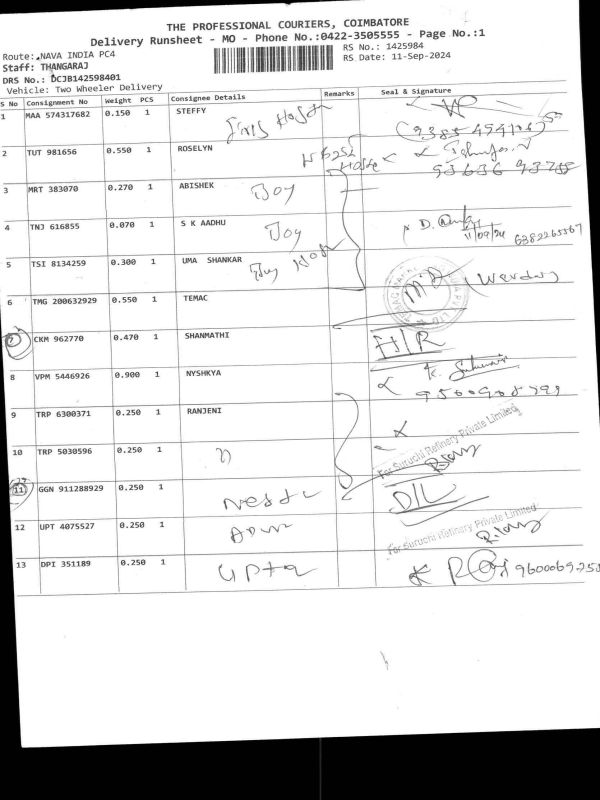 THE PROFESSIONAL COURIERS, COIMBATORE
Delivery Runsheet - MO - Phone No.:0422-3505555 - Page No.:1
Route: NAVA INDIA PC4
RS No.: 1425984
Staff: THANGARAJ
RS Date: 11-Sep-2024
DRS No.: DCJB142598401
Vehicle: Two Wheeler Delivery
S No Consignment No Weight PCS Consignee Details Remarks Seal & Signature
1 MAA 574317682 0.150 1 STEFFY
2 TUT 981656 0.550 1 ROSELYN
93636 93755
3 MRT 383070 0.270 1 ABISHEK Boy
4 TNJ 616855 0.070 1 S K AADHU Boy
11/09/24 6382265567
5 TSI 8134259 0.300 1 UMA SHANKAR
6 TMG 200632929 0.550 1 TEMAC
7 CKM 962770 0.470 1 SHANMATHI H/R
8 VPM 5446926 0.900 1 NYSHKYA
9 TRP 6300371 0.250 1 RANJENI
10 TRP 5030596 0.250 1 For Suruchi Refinery Private Limited
11 GGN 911288929 0.250 1 D/L
12 UPT 4075527 0.250 1 For Suruchi Refinery Private Limited
13 DPI 351189 0.250 1 Upta